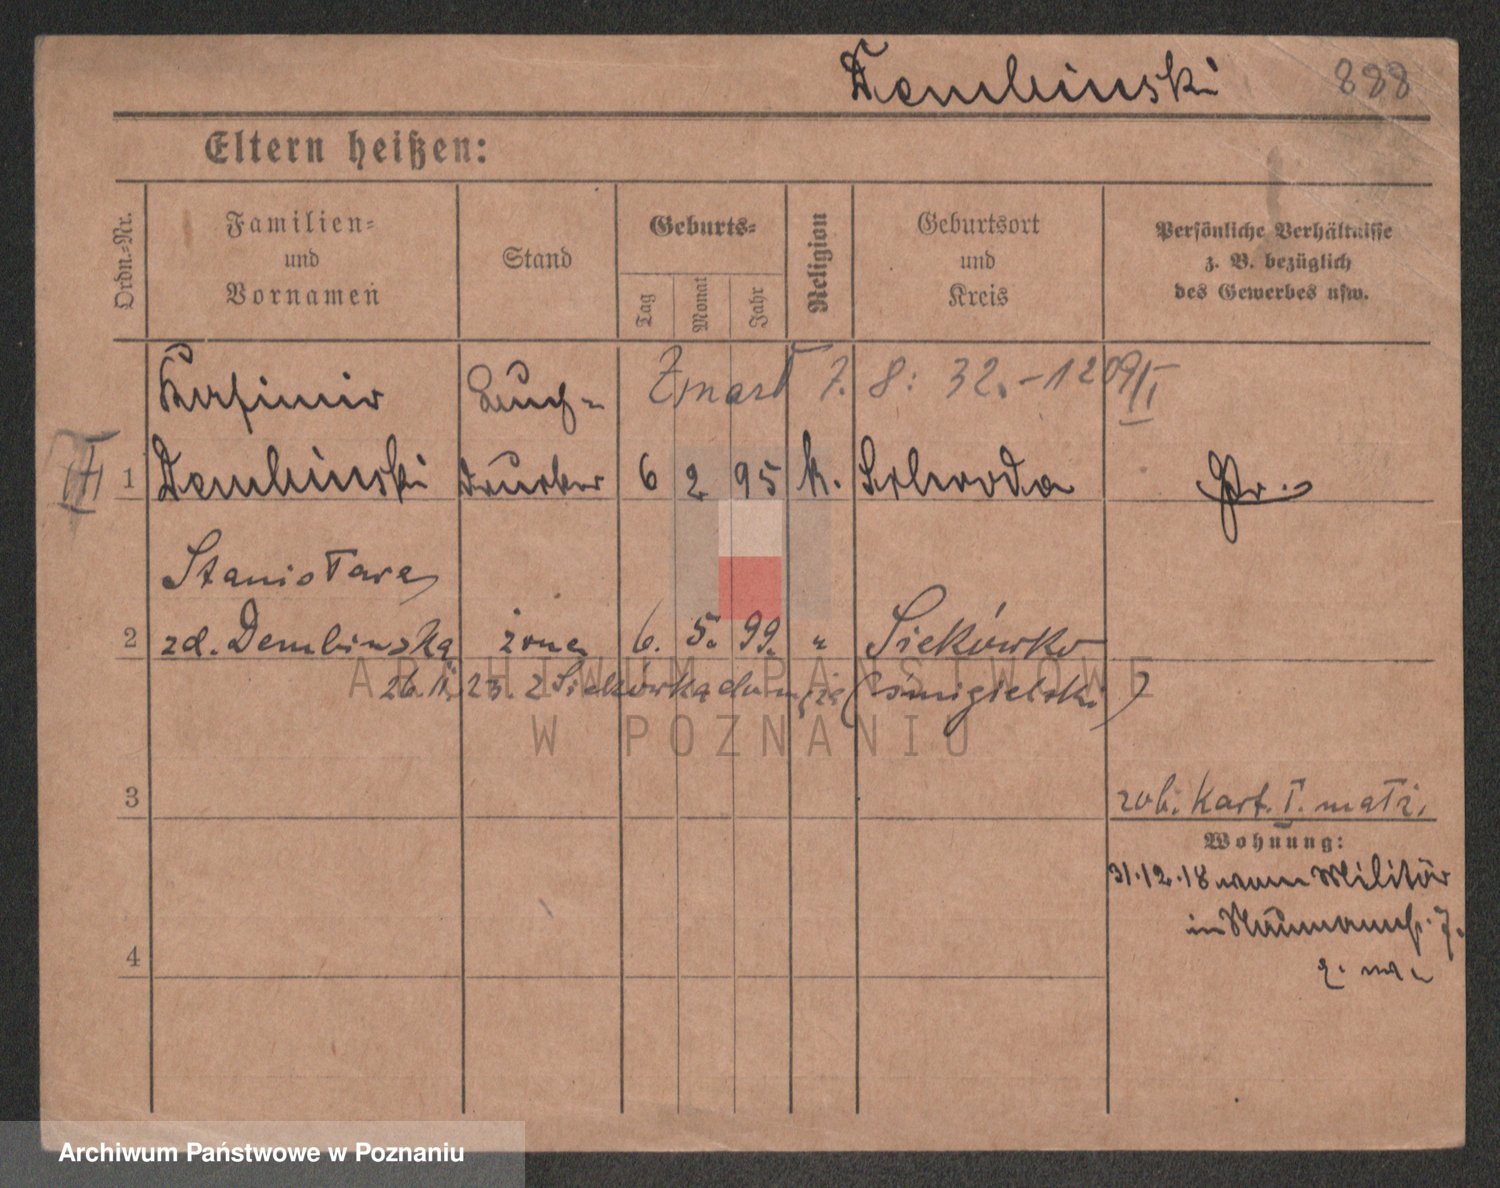 Dembinski 888
Eltern heißen:
Ordn.-Nr.
Familien-
und
Vornamen
Stand
Geburts-
Tag
Monat
Jahr
Religion
Geburtsort
und
Kreis
Persönliche Verhältnisse
z. B. bezüglich
des Gewerbes usw.
Kasimir Buch- Zmarł 7. 8. 32. - 1209/I
1 Dembinski Drucker 6 2 95 k. Schroda Pr.
Stanisława
2 zd. Dembinska żona 6. 5. 99. " Siekówko
26. 11. 23. z Siekówka (śmigielski)
3
rob. Kart. I. małż.
Wohnung:
31.12.18 vom Militär
in Naumannstr. 7.
4
ARCHIWUM PAŃSTWOWE
W POZNANIU
Archiwum Państwowe w Poznaniu